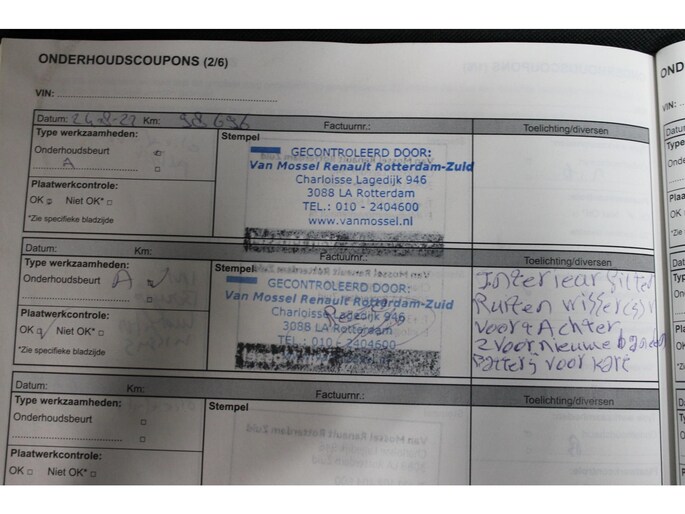 ONDERHOUDSCOUPONS (2/6)
VIN:
Datum: 24-8-22 Km: 98696 Factuurnr.: Toelichting/diversen
Type werkzaamheden: Stempel
Onderhoudsbeurt
A
Plaatwerkcontrole:
OK Niet OK*
*Zie specifieke bladzijde
GECONTROLEERD DOOR:
Van Mossel Renault Rotterdam-Zuid
Charloisse Lagedijk 946
3088 LA Rotterdam
TEL.: 010 - 2404600
www.vanmossel.nl
Datum: Km: Factuurnr.: Toelichting/diversen
Type werkzaamheden: Stempel
Onderhoudsbeurt A
Plaatwerkcontrole:
OK Niet OK*
*Zie specifieke bladzijde
GECONTROLEERD DOOR:
Van Mossel Renault Rotterdam-Zuid
Charloisse Lagedijk 946
3088 LA Rotterdam
TEL.: 010 - 2404600
Interieur filter
Ruiten wisser(s)
voor + Achter
2 voor nieuwe banden
Batterij voor kart
Datum: Km: Factuurnr.: Toelichting/diversen
Type werkzaamheden: Stempel
Onderhoudsbeurt
Plaatwerkcontrole:
OK Niet OK*
OND
VIN:
Datum
Type
Onde
Plaa
OK
*Zie
Datu
Typ
Ond
Pla
OK
*Zie
Da
Ty
On
Pl